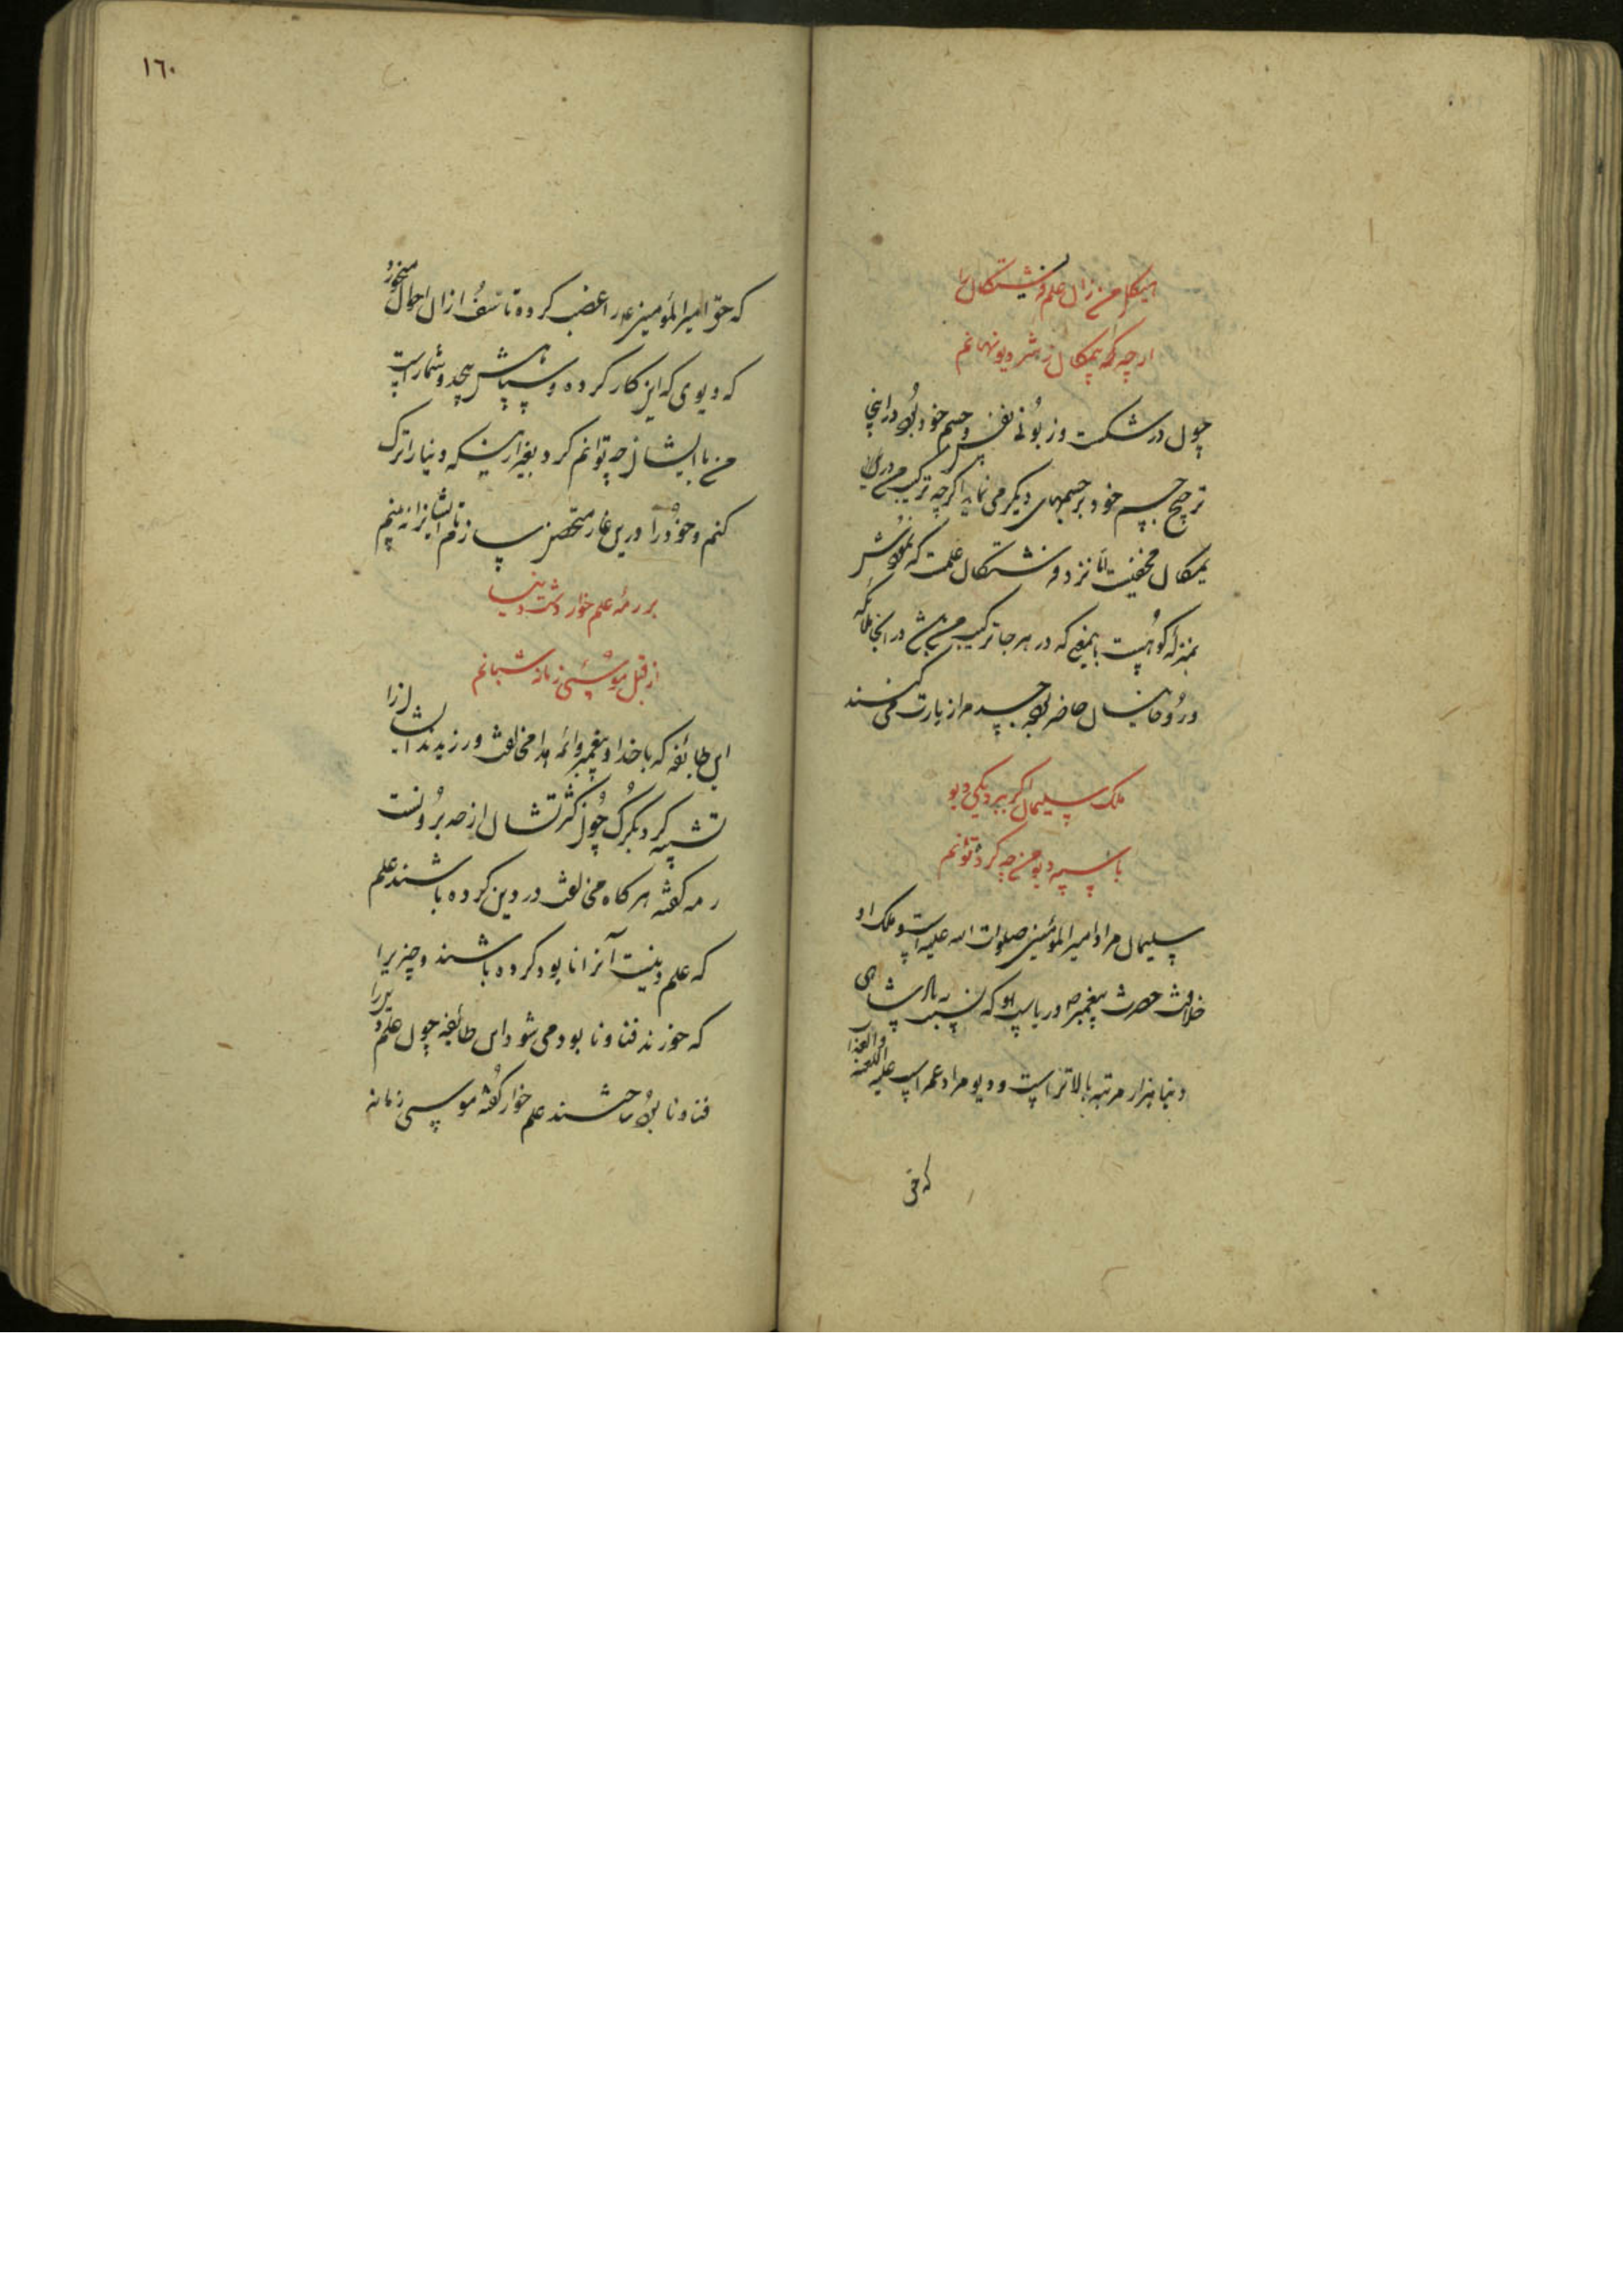 هیکل من زان علم فرشتگان را
ارچه که یمکان ز شر دیو نهانم
چون در شکست و زبونی نفس و جسم خود بود در اینجا
ترجیح جسم خود بر جسمهای دیگر می نماید اگرچه ترکیب من در
یمکان مخفیست اما نزد فرشتگان علمست که نمودش
بمنزله کوهیست بایمعنی که در هر جا ترکیب من باشد در انجا ملائکه
و روحانیان حاضر بوده جسد مرا زیارت می کنند
ملک سلیمان اگر ببرد یکی دیو
با سپه دیو من چه کرد توانم
سلیمان مراد امیر المؤمنین صلوات الله علیه است و ملک او
خلافت حضرت پیغمبر ص و ریاست او که نسبت به پادشاهی
دنیا هزار مرتبه بالاتر است و دیو مراد عمر است علیه اللعنه والعذاب
که حق
١٦٠
که حق امیر المؤمنین ع را غصب کرده تاسف از ان احوال میخورد
که دیوی که این کار کرده و سپاهش بیحد و شمار است
من با ایشان چه توانم کرد بغیر از اینکه دنیا را ترک
کنم و خود را درین غار متحصن سازم تا ایشانرا نه بینم
بر رمه علم خوار در شب دنیا
از قبل موسی زمانه شبانم
این طایفه که با خدا و پیغمبر و ائمه هدا مخالفت ورزیدند ایشان را
تشبیه کرد بگرگ چون کثرتشان از حد برونست
رمه گفته هرگاه مخالفت در دین کرده باشند علم
که علم دینیست آنرا نابود کرده باشند و چیزیرا
که خورند فنا و نابود می شود این طائفه چون علم دین را
فنا و نابود ساختند علم خوار گفته موسی زمانه